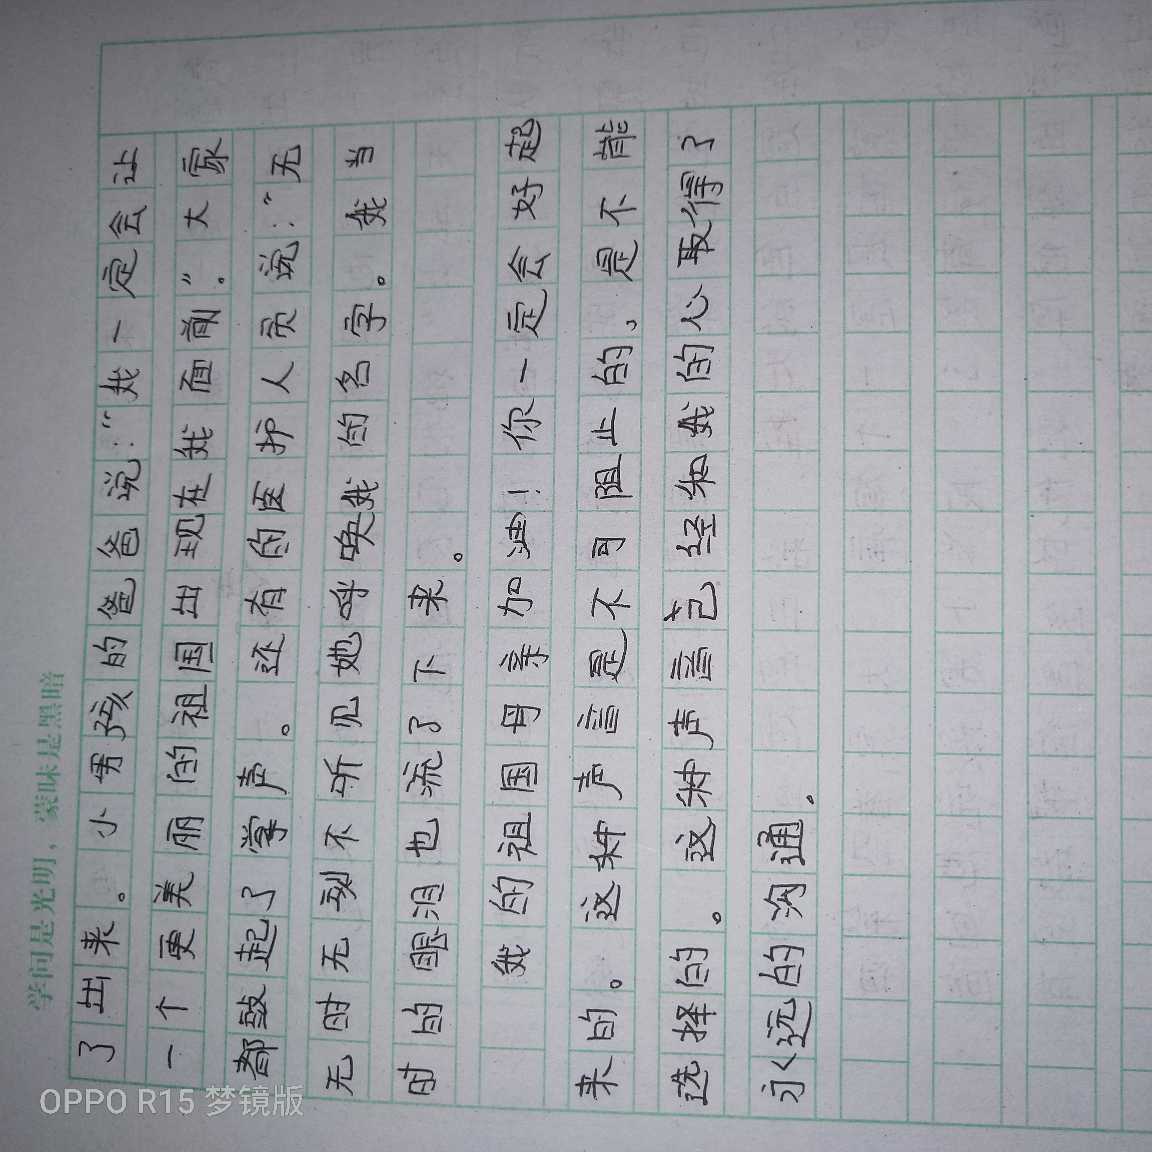 学问是光明，蒙昧是黑暗
了出来。小男孩的爸爸说：“我一定会让
一个更美丽的祖国出现在我面前”。大家
都鼓起了掌声。还有的医护人员说：“无
无时无刻不听见她呼唤我的名字。我当
时的眼泪也流了下来。
我的祖国母亲加油！你一定会好起
来的。这种声音是不可阻止的，是不能
选择的。这种声音已经和我的心取得了
永远的沟通。
OPPO R15 梦镜版